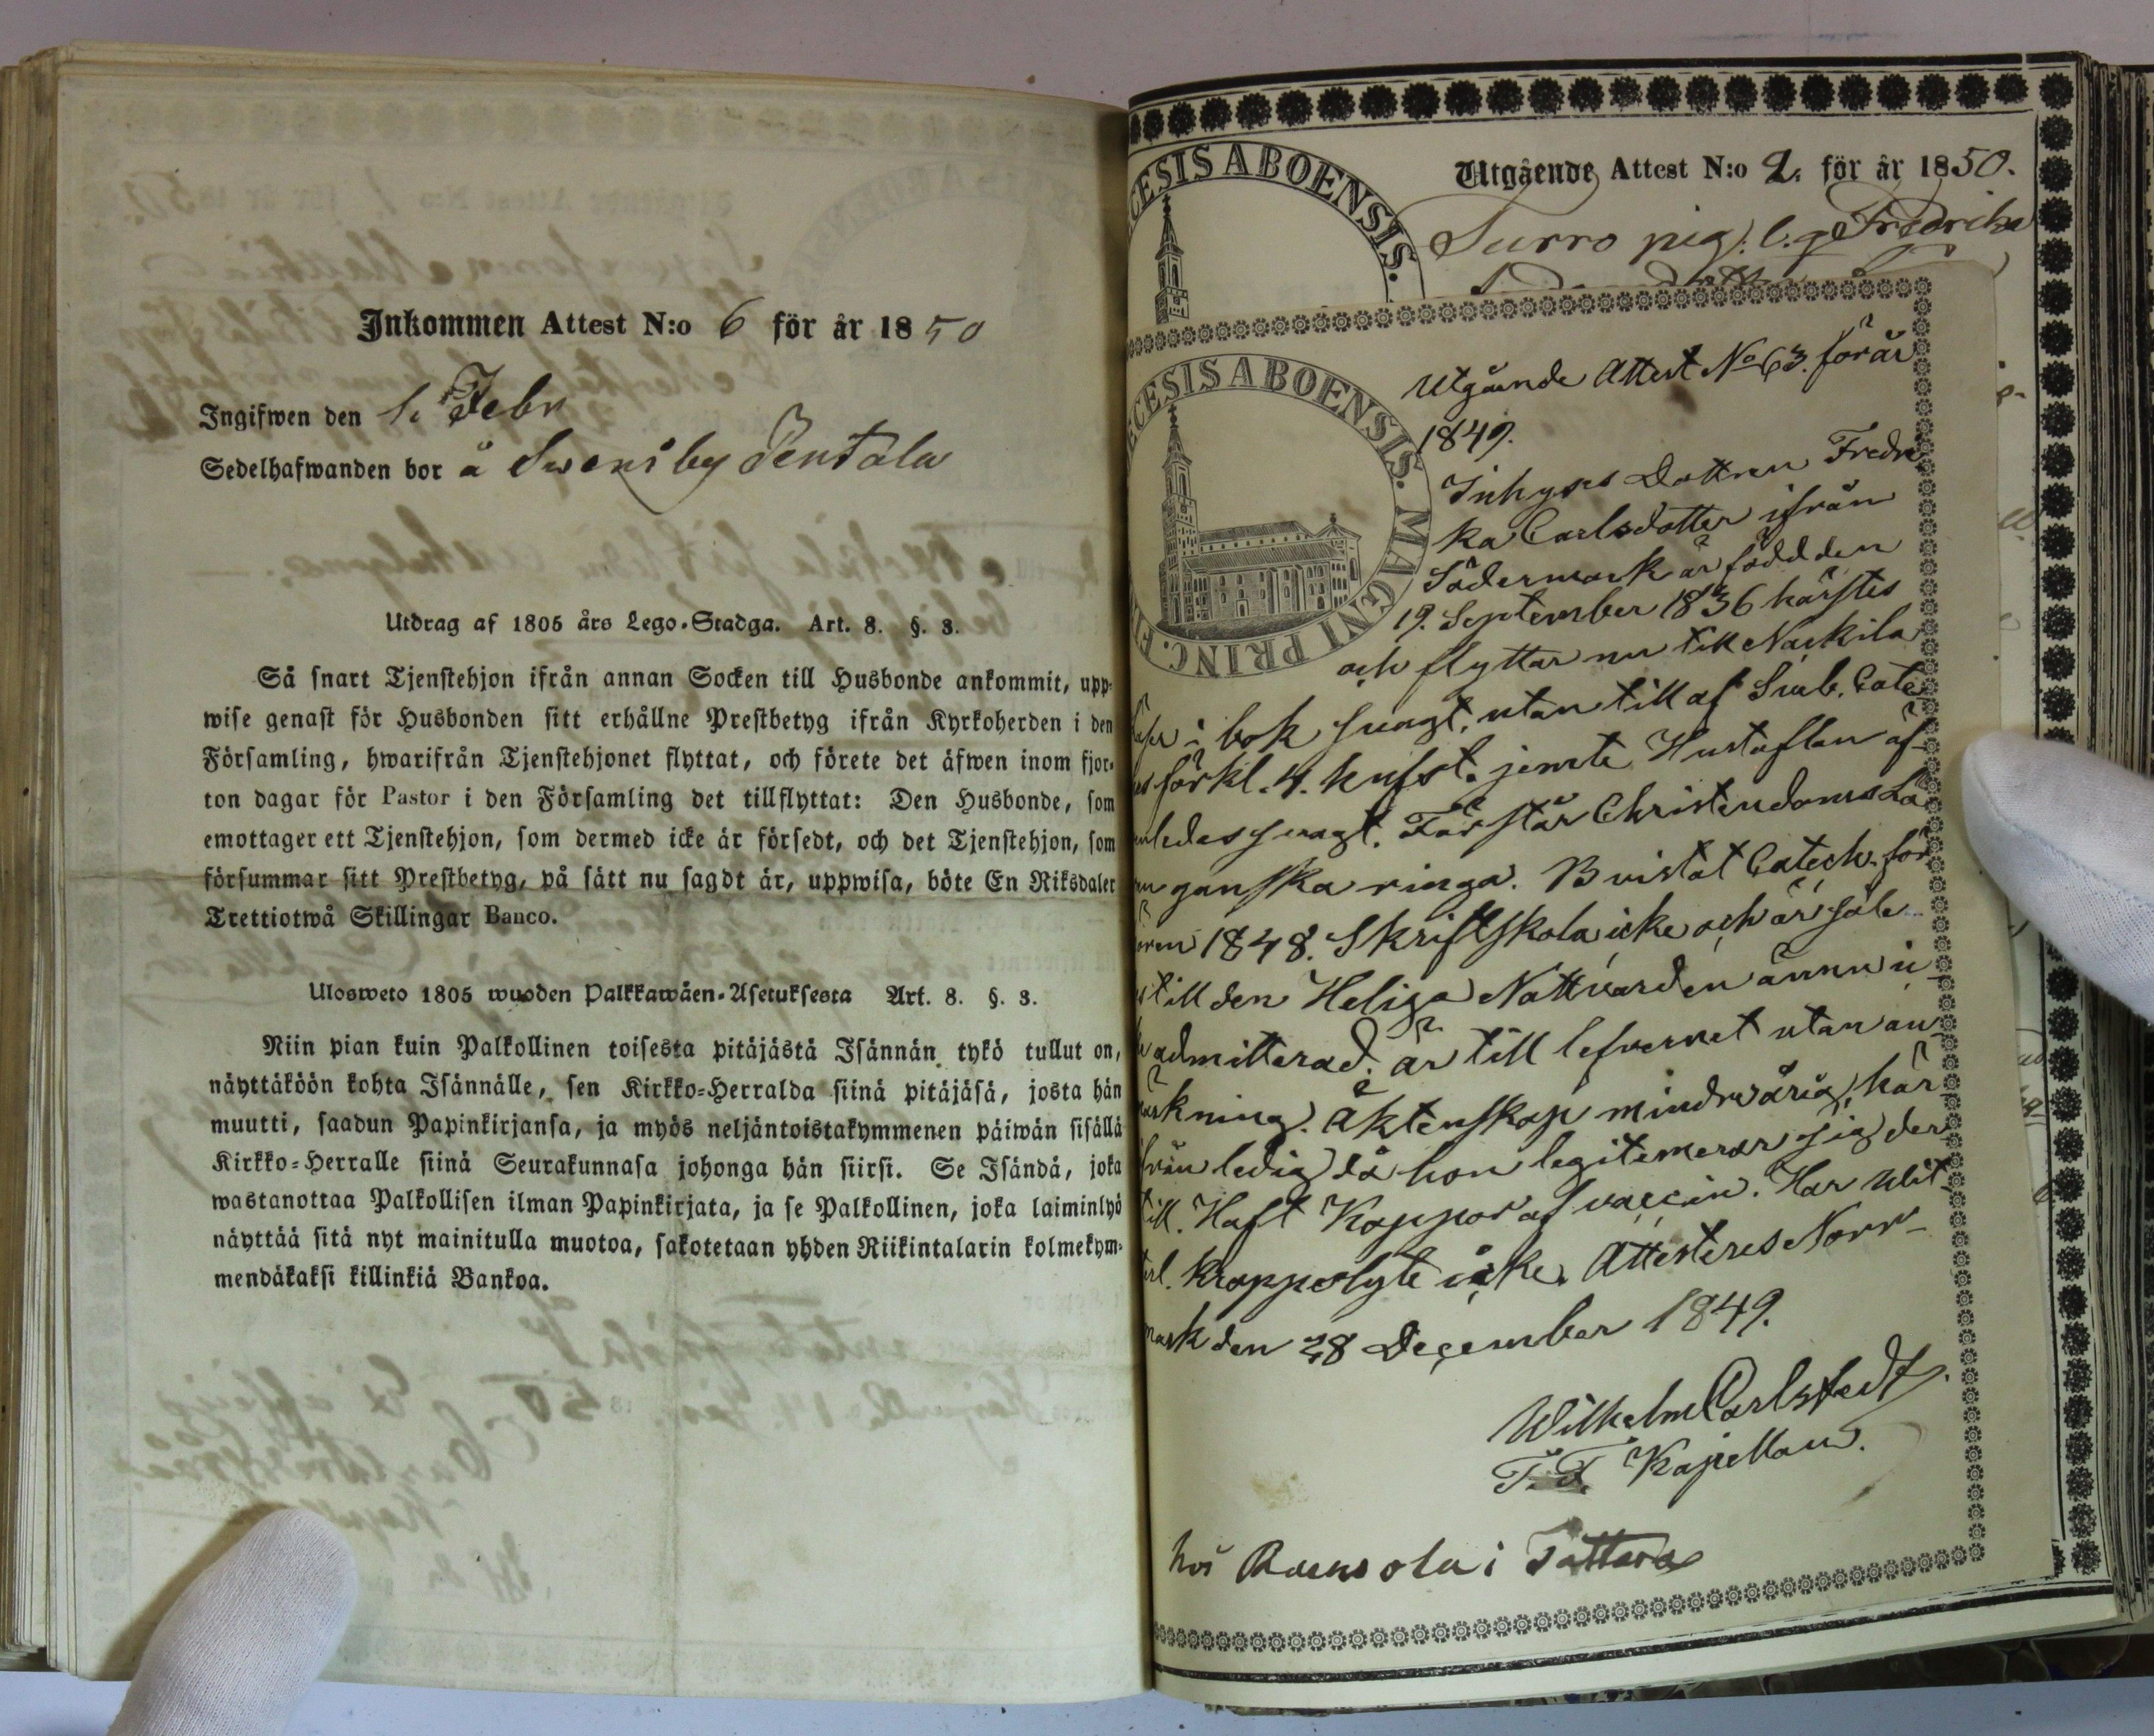 Inkommen Attest N:o 6 för år 1850
Ingifwen den 1. Febr
Sedelhafwanden bor å Swensby Pentala
Utdrag af 1805 års Lego-Stadga. Art. 8. §. 3.
Så snart Tjenstehjon ifrån annan Socken till Husbonde ankommit, upp-
wise genast för Husbonden sitt erhållne Prestbetyg ifrån Kyrkoherden i den
Församling, hwarifrån Tjenstehjonet flyttat, och förete det äfwen inom fjor-
ton dagar för Pastor i den Församling det tillflyttat: Den Husbonde, som
emottager ett Tjenstehjon, som dermed icke är försedt, och det Tjenstehjon, som
försummar sitt Prestbetyg, på sätt nu sagdt är, uppwisa, böte En Riksdaler
Trettiotwå Skillingar Banco.
Ulosweto 1805 wuoden Palkkawäen-Asetuksesta Art. 8. §. 3.
Niin pian kuin Palkollinen toisesta pitäjästä Isännän tykö tullut on,
näyttäköön kohta Isännälle, sen Kirkko-Herralda siinä pitäjäsä, josta hän
muutti, saadun Papinkirjansa, ja myös neljäntoistakymmenen päiwän sisällä
Kirkko-Herralle siinä Seurakunnasa johonga hän siirsi. Se Isändä, joka
wastanottaa Palkollisen ilman Papinkirjata, ja se Palkollinen, joka laiminlyö
näyttää sitä nyt mainitulla muotoa, sakotetaan yhden Riikintalarin kolmekym-
mendäkaksi killinkiä Bankoa.
CESIS ABOENSIS.
Utgående Attest N:o 2. för år 1850.
Surro pig: l.g. Fredrika
CESIS ABOENSIS. MAGNI PRINC.
Utgående Attest No 63. för år
1849.
Inhyses Dottren Fredri
ka Carlsdotter ifrån
Södermark är född den
19. September 1836 härstes
och flyttar nu till Naskila
i bok svagt, utantill af Sveb. Cate
förkl. 4. hufst. jemte Hustaflan äf
ledes svagt. Förstår Christendoms Lä
ganska ringa. Bvistat Catech. för
1848. Skriftskola icke och är såle
till den Heliga Nattvarden ännu i
admitterad. är till lefvernet utan an
märkning. Äktenskap minderårig, här
ifrån ledig då hon legitimerar sig der
till. Haft Koppor af vaccin. Har wit
terl. Kroppslyte icke. Attesteres Norr-
mark den 28 December 1849.
Wilhelm Carlstedt.
T. F. Kapellan.
hos i Tattara